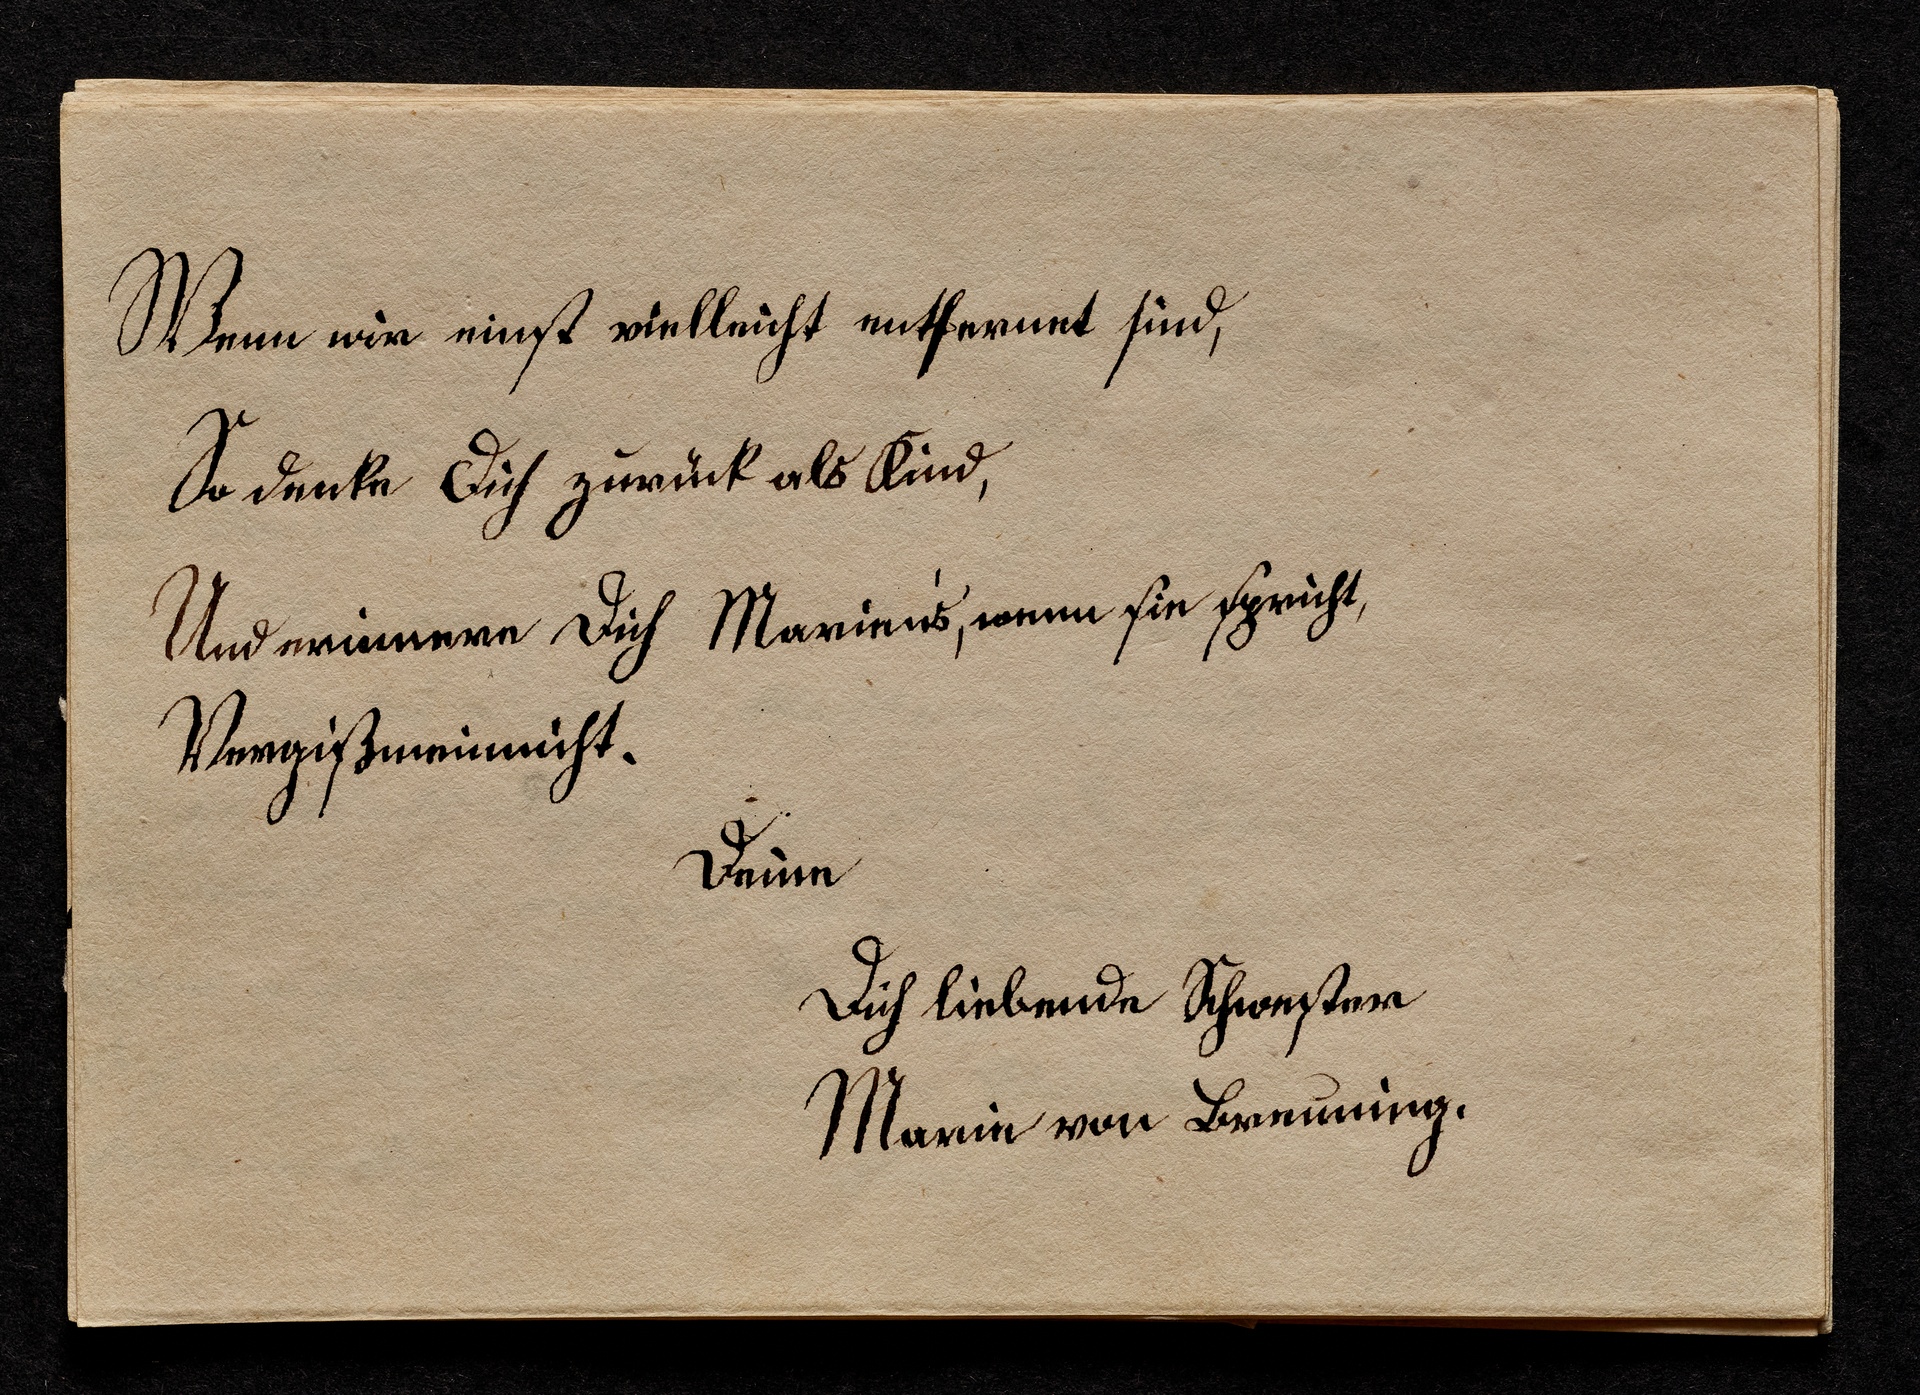 Wenn wir einst vielleicht entfernet sind,
So denke Dich zurück als Kind,
Und erinnere Dich Marien's, wenn sie spricht,
Vergißmeinnicht.
Deine
Dich liebende Schwester
Marie von Breuning.